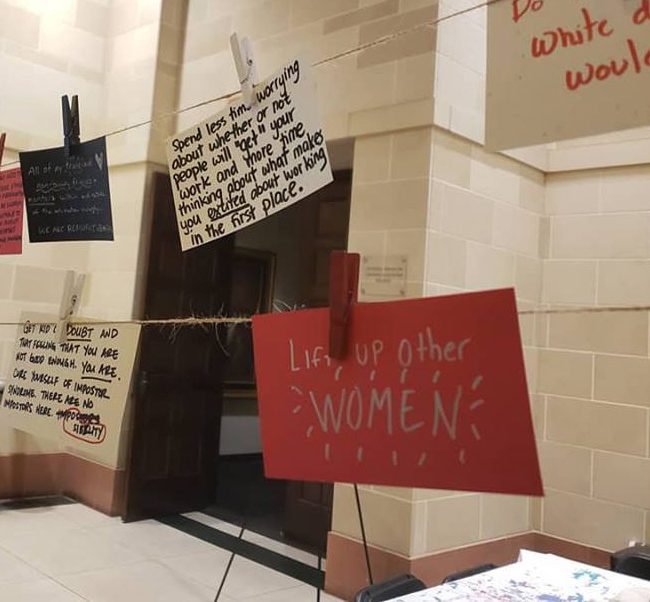 Do
white d
woul
Spend less time worrying
about whether or not
people will "get" your
work and more time
thinking about what makes
you excited about working
in the first place.
All of my
nonbinary
WE ARE
GET RID OF DOUBT AND
THAT FEELING THAT YOU ARE
NOT GOOD ENOUGH. YOU ARE.
CURE YOURSELF OF IMPOSTOR
SYNDROME. THERE ARE NO
IMPOSTORS HERE.
SIBILITY
Lift UP Other
WOMEN